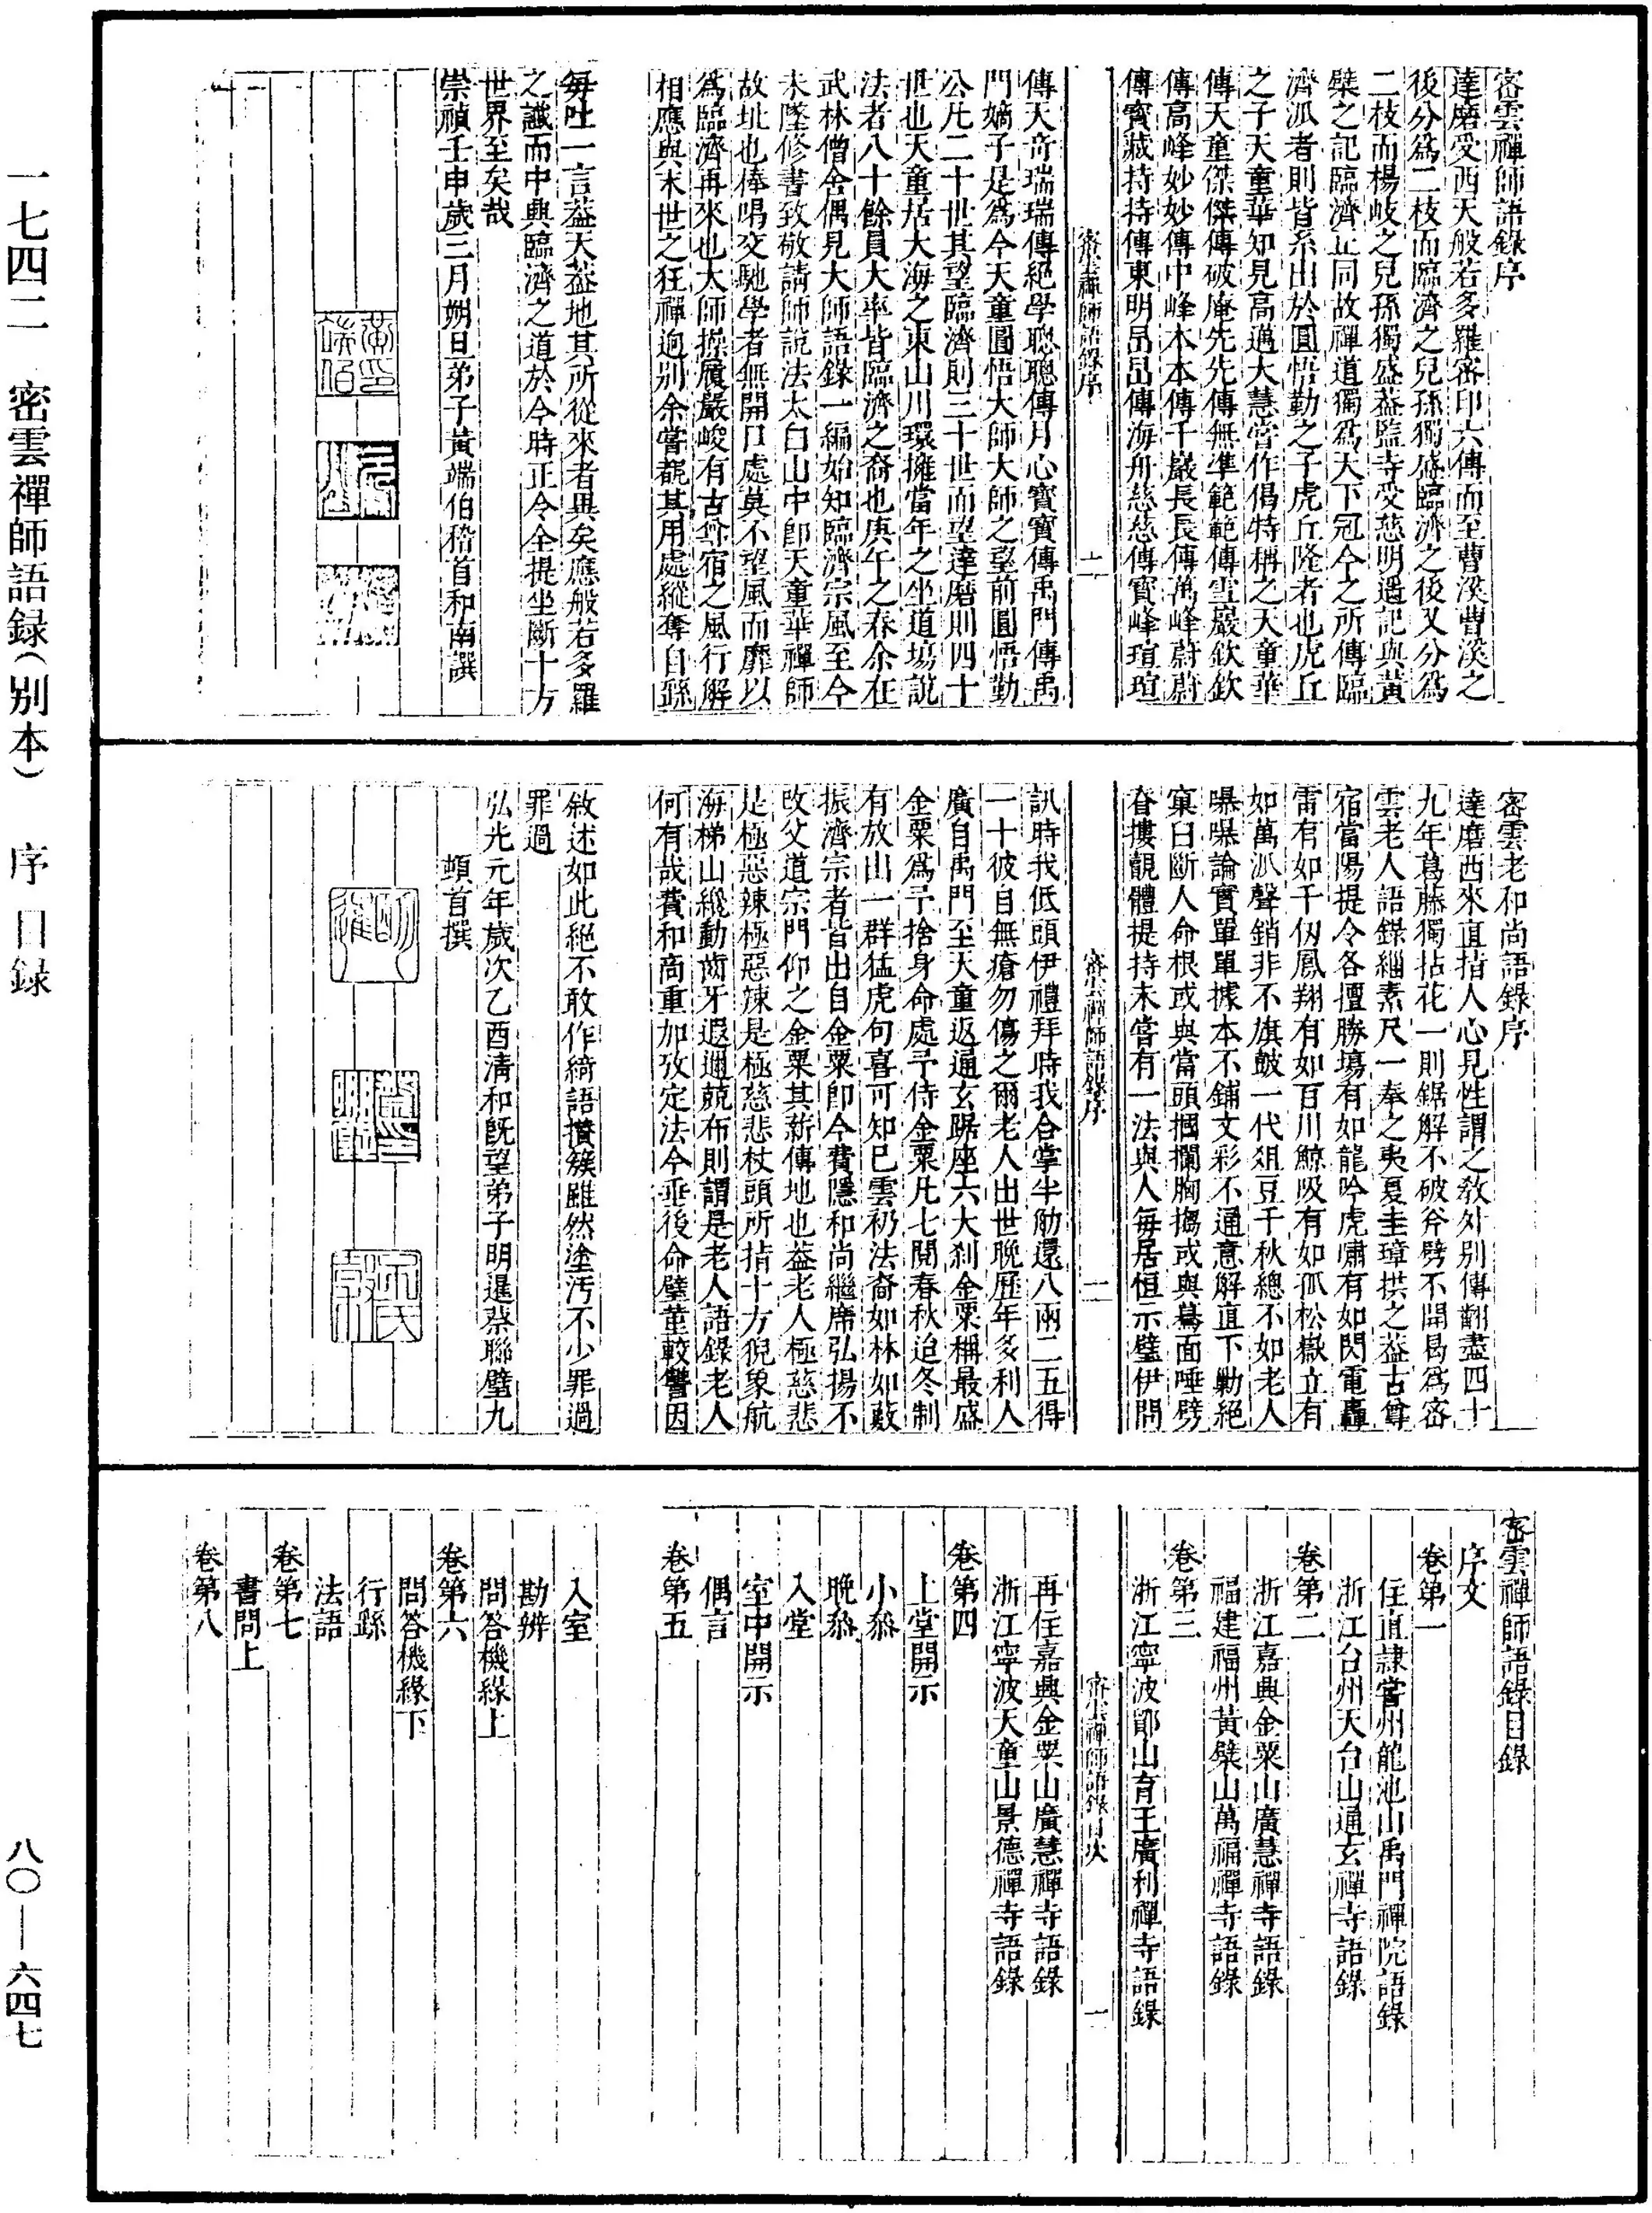 密雲禪師語錄序
達磨受西天般若多羅密印六傳而至曹溪曹溪之
後分爲二枝而臨濟之兒孫獨盛臨濟之後又分爲
二枝而楊岐之兒孫獨盛葢監寺受慈明遥記與黃
檗之記臨濟正同故禪道獨爲天下冠今之所傳臨
濟派者則皆系出於圓悟勤之子虎丘隆者也虎丘
之子天童華知見高邁大慧嘗作偈特稱之天童華
傳天童傑傑傳破庵先先傳無準範範傳雪巖欽欽
傳高峰妙妙傳中峰本本傳千巖長長傳萬峰蔚蔚
傳寶藏持持傳東明旵旵傳海舟慈慈傳寶峰瑄瑄
密雲禪師語錄序
二
傳天竒瑞瑞傳絕學聰聰傳月心寶寶傳禹門傳禹
門嫡子是爲今天童圓悟大師大師之望前圓悟勤
公凡二十世其望臨濟則三十世而望達磨則四十
世也天童居大海之東山川環擁當年之坐道場說
法者八十餘員大率皆臨濟之裔也庚午之春余在
武林僧舍偶見大師語錄一編始知臨濟宗風至今
未墜修書致敬請師說法太白山中卽天童華禪師
故址也俸喝交馳學者無開口處莫不望風而靡以
爲臨濟再來也大師操履嚴峻有古尊宿之風行解
相應與末世之狂禪逈別余嘗覩其用處縱奪自繇
每吐一言葢天葢地其所從來者異矣應般若多羅
之讖而中興臨濟之道於今時正令全提坐斷十方
世界至矣哉
崇禎壬申歲三月朔旦弟子黃端伯稽首和南譔
密雲老和尚語錄序
達磨西來直指人心見性謂之敎外別傳翻盡四十
九年葛藤獨拈花一則鋸解不破斧劈不開曷爲密
雲老人語錄緇素尺一奉之夷夏圭璋拱之葢古尊
宿當陽提令各擅勝塲有如龍吟虎嘯有如閃電轟
雷有如千仭鳳翔有如百川鯨吸有如孤松嶽立有
如萬派聲銷非不旗皷一代俎豆千秋總不如老人
曝曝論實單單據本不鋪文彩不通意解直下勦絕
窠臼斷人命根或與當頭摑攔胸搊或與驀面唾劈
脊摟覿體提持未嘗有一法與人每居恒示璧伊問
密雲禪師語錄序
一
訊時我低頭伊禮拜時我合掌半觔還八兩二五得
一十彼自無瘡勿傷之爾老人出世晚歷年多利人
廣自禹門至天童返通玄踞座六大刹金粟稱最盛
金粟爲予捨身命處予侍金粟凡七閱春秋迨冬制
有放出一群猛虎句喜可知已雲礽法裔如林如藪
振濟宗者皆出自金粟卽今費隱和尚繼席弘揚不
改父道宗門仰之金粟其薪傳地也葢老人極慈悲
是極惡辣極惡辣是極慈悲杖頭所指十方猊象航
海梯山纔動齒牙遐邇兢布則謂是老人語錄老人
何有哉費和尚重加攷定法今垂後命璧董較讐因
敘述如此絕不敢作綺語攅簇雖然塗污不少罪過
罪過
弘光元年歲次乙酉清和既望弟子明暹蔡聯璧九
頓首撰
密雲禪師語錄目錄
序文
卷第一
住直隷嘗州龍池山禹門禪院語錄
浙江台州天台山通玄禪寺語錄
卷第二
浙江嘉興金粟山廣慧禪寺語錄
福建福州黃檗山萬福禪寺語錄
卷第三
浙江寧波鄮山育王廣利禪寺語錄
密雲禪師語錄目次
一
再住嘉興金粟山廣慧禪寺語錄
浙江寧波天童山景德禪寺語錄
卷第四
上堂開示
小叅
晚叅
入堂
室中開示
偶言
卷第五
入室
勘辨
問答機緣上
卷第六
問答機緣下
行繇
法語
卷第七
書問上
卷第八
一七四二　密雲禪師語録（别本）　序　目録
八〇—六四七